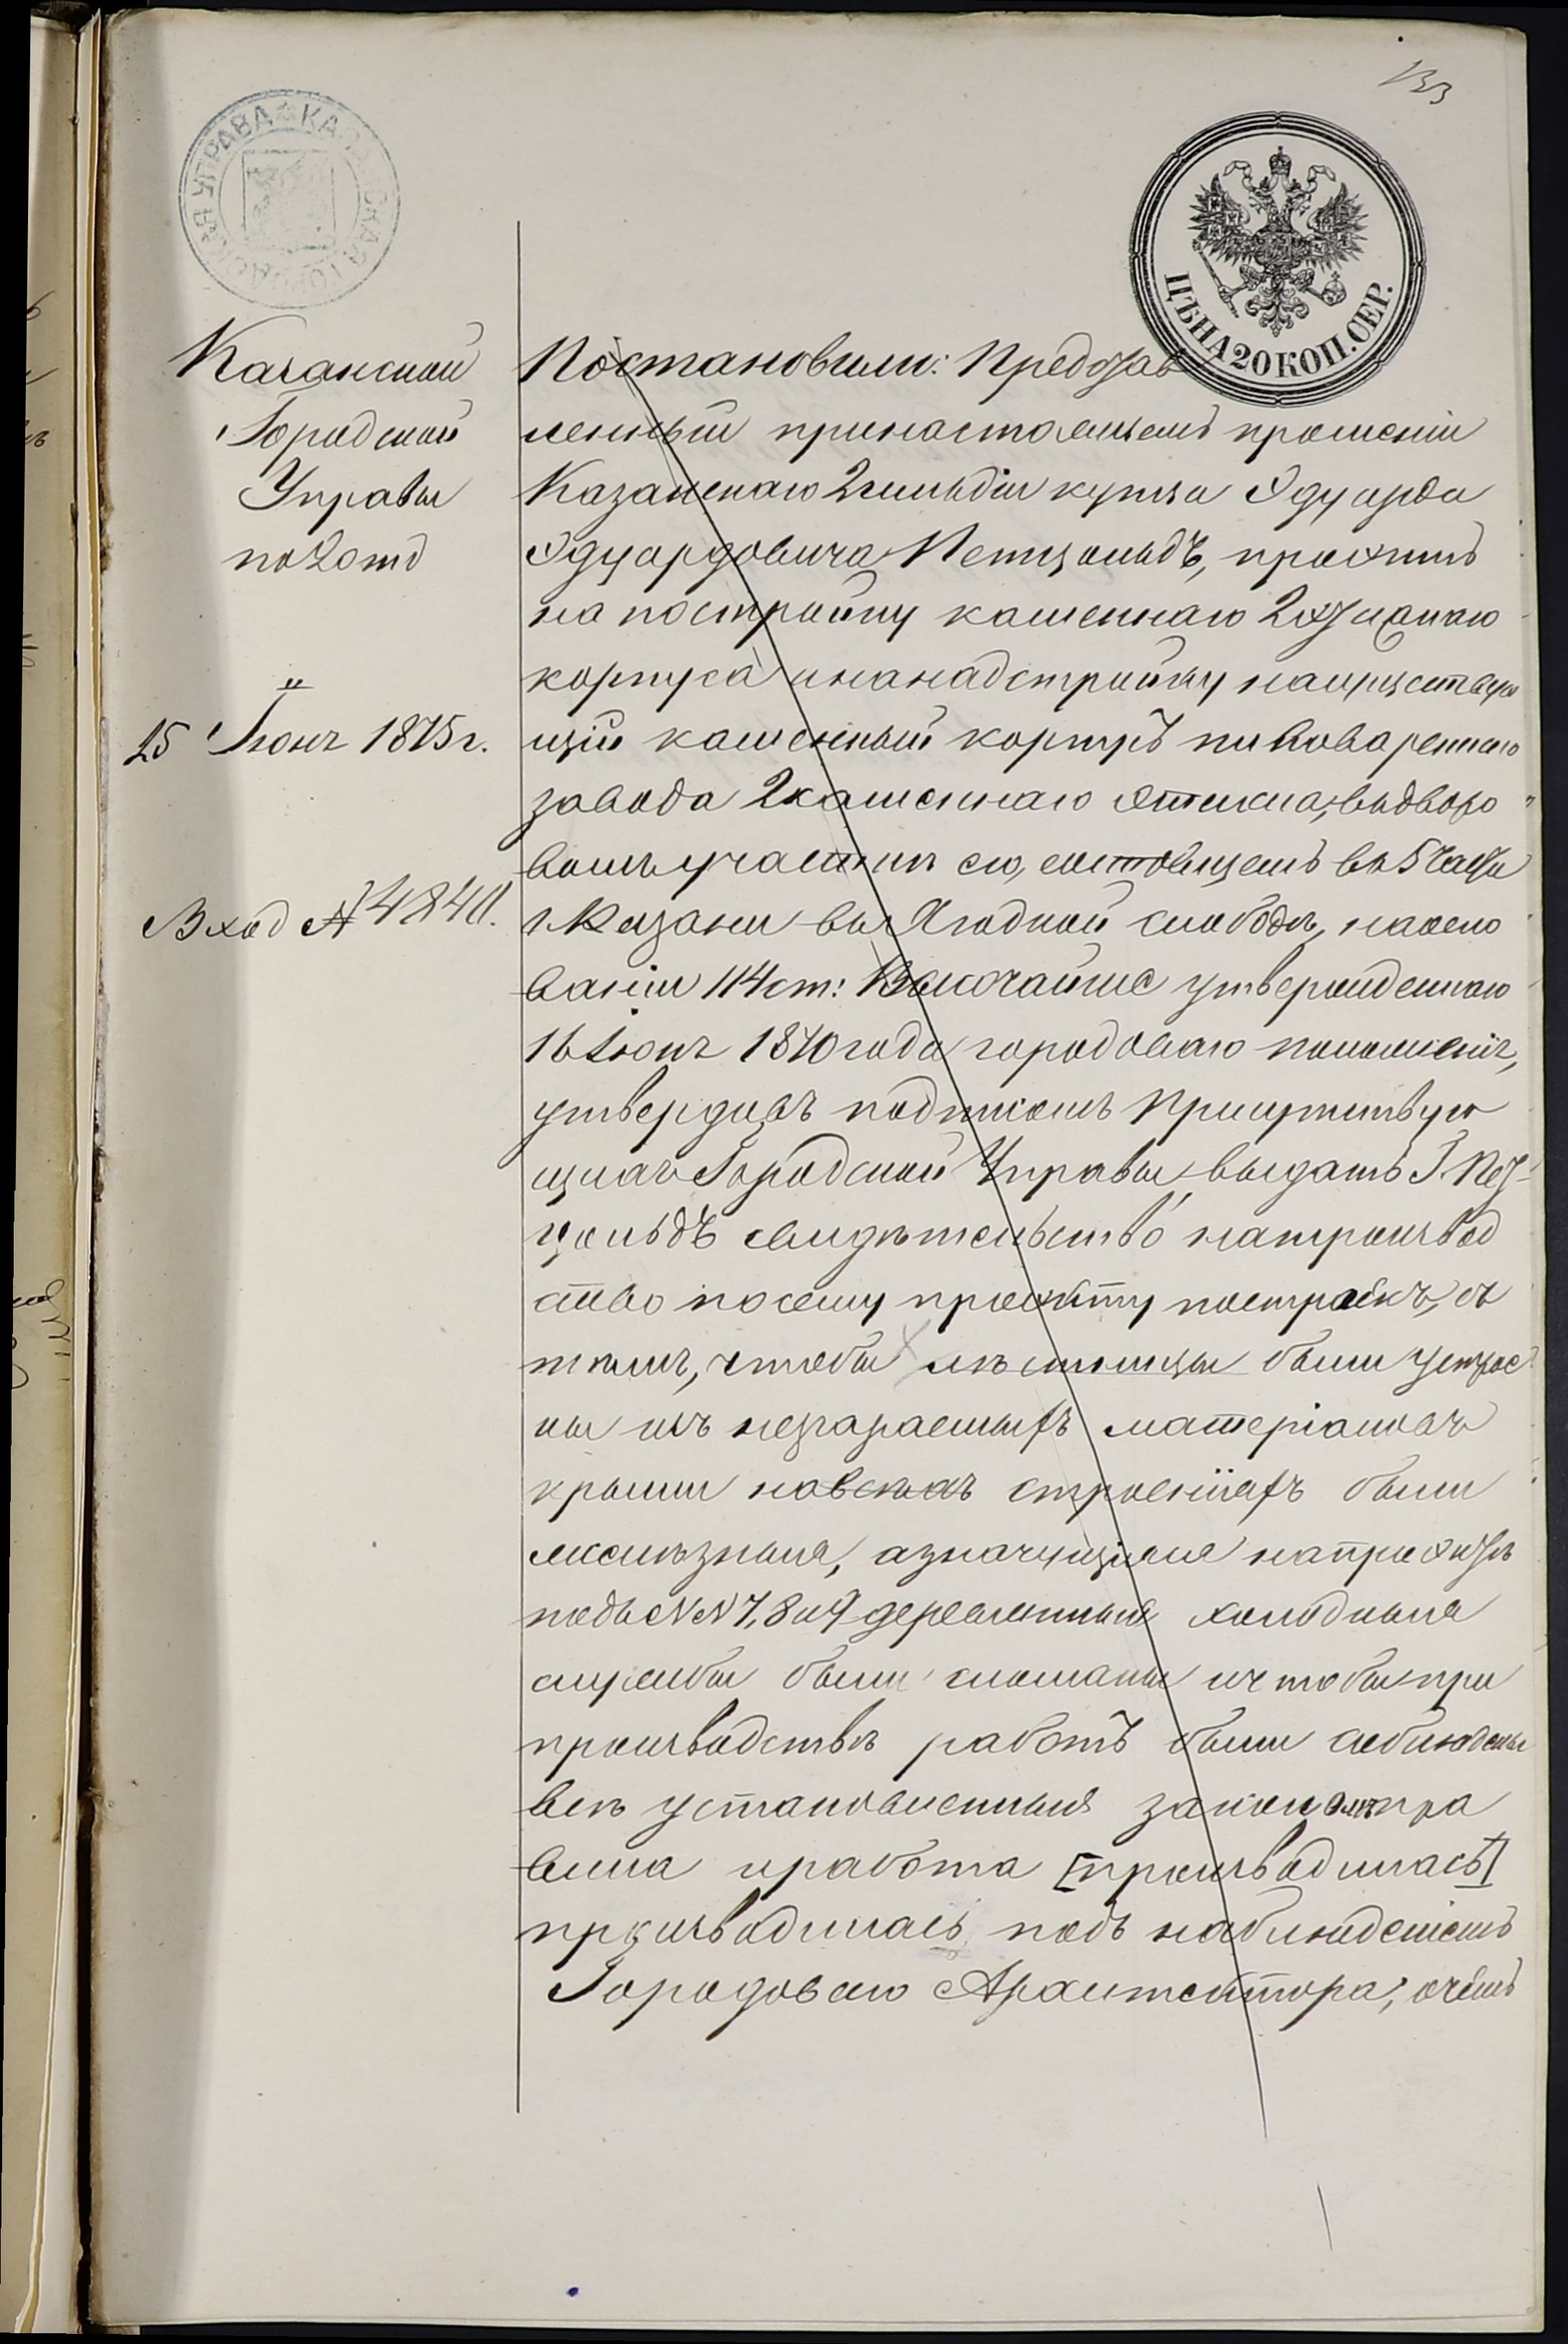 133
КАЗАНСКАЯ ГОРОДСКАЯ УПРАВА
ЦѢНА 20 КОП. СЕР.
Казанской
Городской
Управы
по 2 отд
25 Іюня 1875 г.
Вход № 4840.
Постановили: Предъяв
ленный при настоящемъ прошеніи
Казанскаго 2 гильдіи купца Эдуарда
Эдуардовича Петцольдъ, проэктъ
на постройку каменнаго 2хъ этажнаго
корпуса и на надстройку на существую
щій каменный корпусъ пивовареннаго
завода 2 каменнаго этажа, въ дворо
вомъ участкѣ его, состоящемъ въ 5 части
г. Казани въ Ягодной слободѣ, на осно
ваніи 114 ст: Высочайше утвержденнаго
16 Іюня 1870 года городоваго положенія,
утвердивъ подписомъ Присутствую
щихъ Городской Управы выдать Г. Пет-
цольдъ свидѣтельство на производ
ство по сему проэкту построекъ, съ
тѣмъ, чтобы лѣстницы были устрое
ны изъ несгараемыхъ матеріаловъ
крыши на всѣхъ строеніяхъ были
желѣзныя, а значущіяся на проэктѣ
подъ №№ 7, 8 и 9 деревянныя холодныя
службы были сломаны и чтобы при
производствѣ работъ были соблюдены
всѣ установленныя закономъ пра
вила и работа [производилась]
производилась подъ наблюденіемъ
Городоваго Архитектора, о чемъ